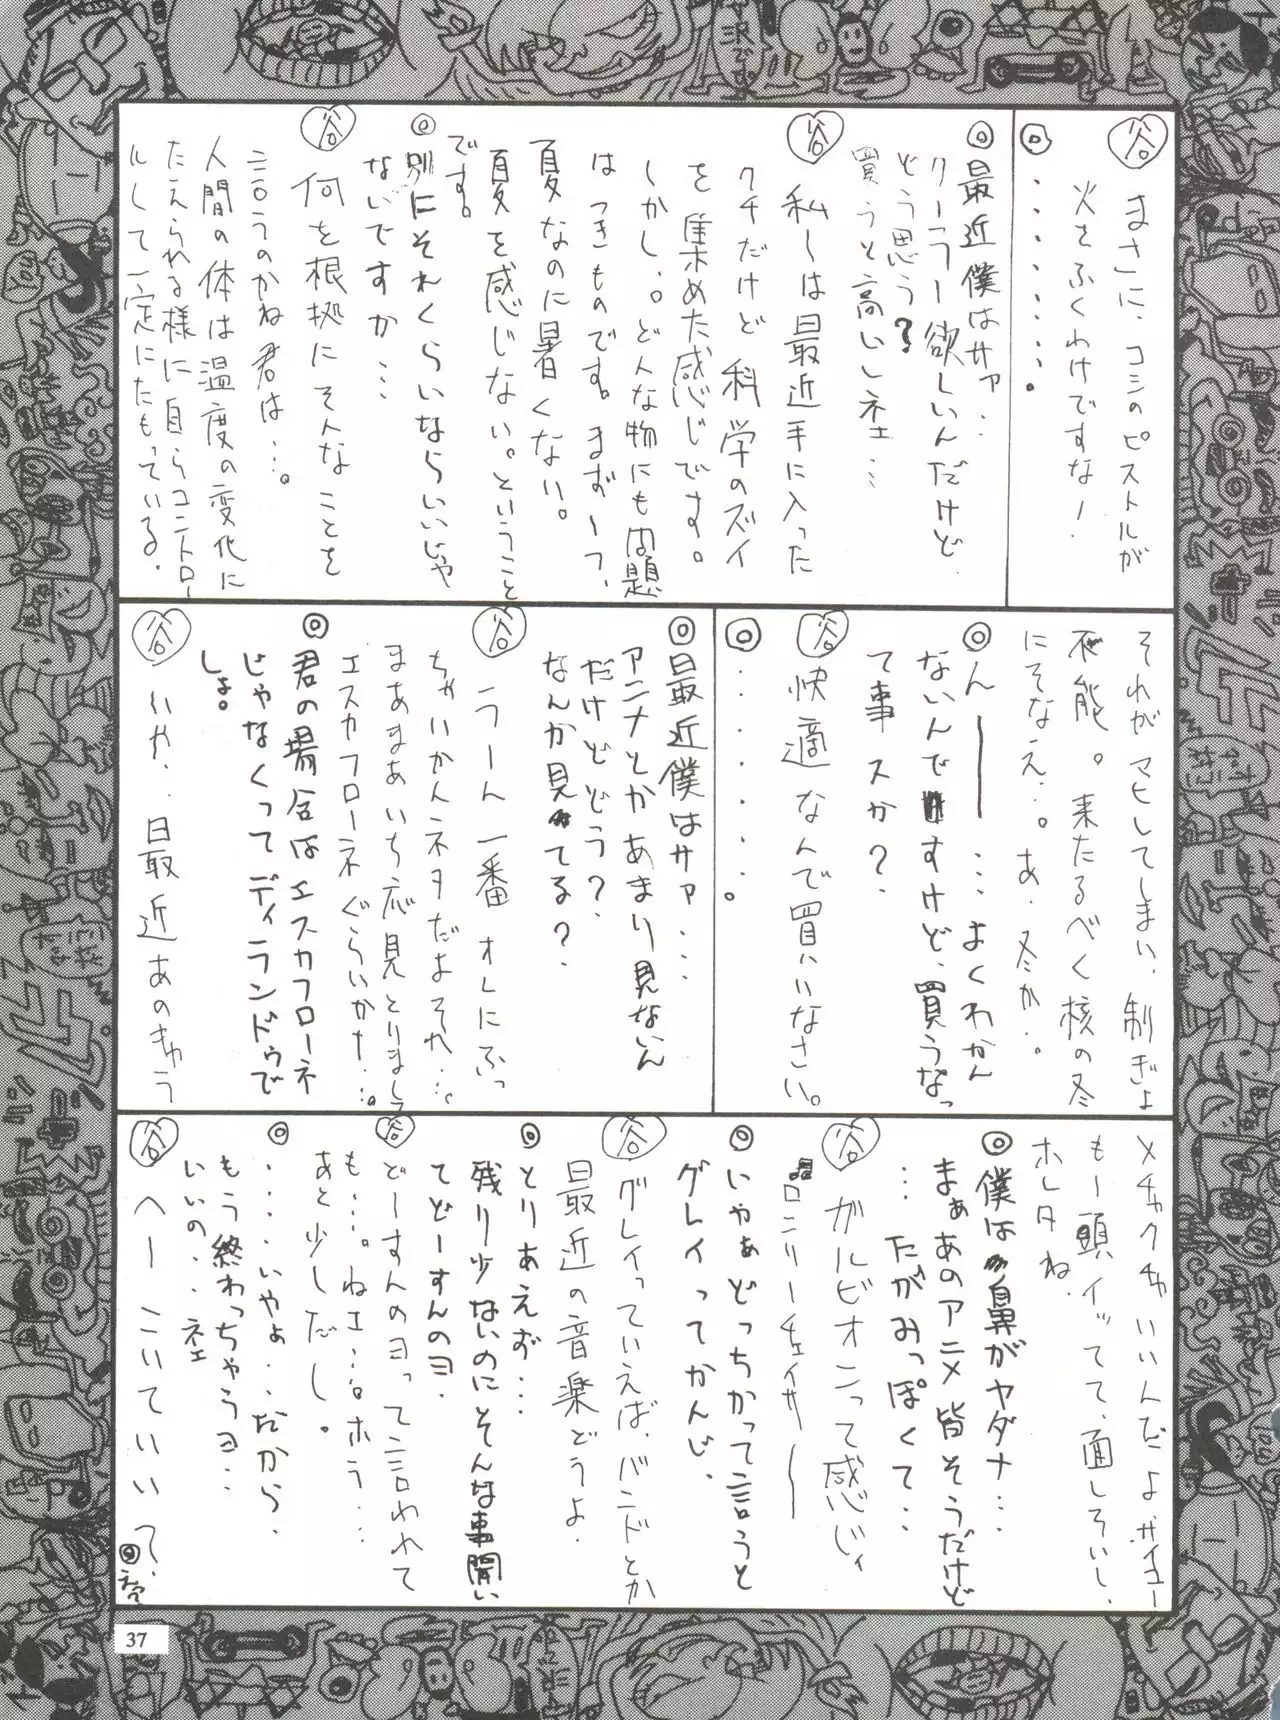 谷 まさに、コシのピストルが
火をふくわけですな!
◎・・・・・・・・。
◎最近僕はサァ…
クーラー欲しいんだけど
どう思う?
買うと高いしネェ…
谷 私〜は最近手に入った
クチだけど科学のズイ
を集めた感じです。
しかし。。どんな物にも問題
はつきものです。まず一つ、
夏なのに暑くない。
夏を感じない。ということ
です。
◎別にそれくらいならいいじゃ
ないですか…
谷 何を根拠にそんなことを
言うのかね君は…。
人間の体は温度の変化に
たえられる様に自らコントロー
ルして一定にたもっている。
それがマヒしてしまい、制ぎょ
不能。来たるべく核の冬
にそなえ。。あ、冬か。
◎んーー…よくわかん
ないんですけど、買うなっ
て事スか?
谷 快適なんで買いなさい。
◎・・・・・・。
◎最近僕はサァ…
アニメとかあまり見ないん
だけどどう?
なんか見てる?
谷 うーん一番オレにふっ
ちゃいかんネタだよそれ…。
まあまあいち応見とりまして
エスカフローネぐらいかナ…。
◎君の場合はエスカフローネ
じゃなくってディランドゥで
しょ。
谷 いや、最近あのきゅう
メチャクチャいいんだよサイコー
もー頭イッてて、面しろいし、
ホレタね。
◎僕は鼻がヤダナ…
まぁあのアニメ皆そうだけど
…たがみっぽくて・・
谷 ガルビオンって感じィ
♬ロンリーチェイサー〜
◎いやぁどっちかって言うと
グレイってかんじ、
谷 グレイっていえば、バンドとか
最近の音楽どうよ.
◎とりあえず…
残り少ないのにそんな事聞い
てどーすんのヨ.
谷 どーすんのヨって言われて
も…。ねェ…。ホラ…
あと少しだし。
◎・・・・いやぁ・・だから、
もう終わっちゃうヨ…
いいの…ネェ
谷 へーこいていい?
37